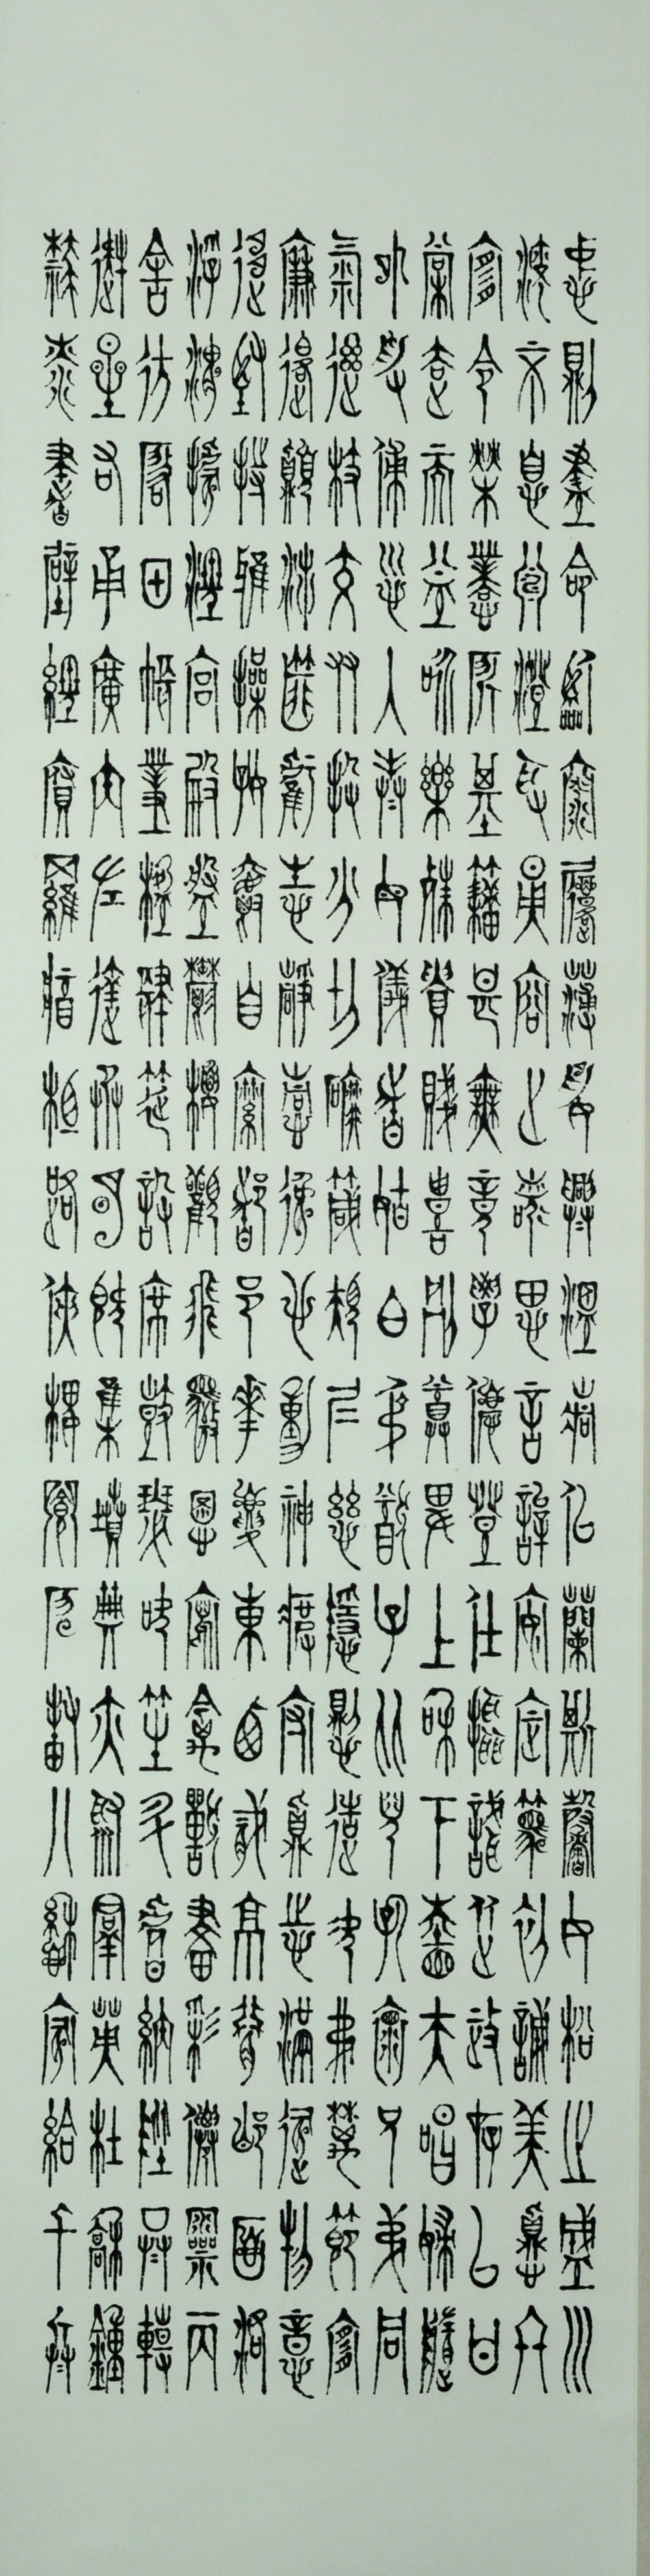 忠則盡命臨深履薄夙興溫凊似蘭斯馨如松之盛川
流不息淵澄取映容止若思言辭安定篤初誠美慎終
宜令榮業所基籍甚無竟學優登仕攝職從政存以甘
棠去而益詠樂殊貴賤禮別尊卑上和下睦夫唱婦隨
外受傅訓入奉母儀諸姑伯叔猶子比兒孔懷兄弟同
氣連枝交友投分切磨箴規仁慈隱惻造次弗離節義
廉退顛沛匪虧性靜情逸心動神疲守真志滿逐物意
移堅持雅操好爵自縻都邑華夏東西二京背邙面洛
浮渭據涇宮殿盤鬱樓觀飛驚圖寫禽獸畫彩仙靈丙
舍傍啟甲帳對楹肆筵設席鼓瑟吹笙升階納陛弁轉
疑星右通廣內左達承明既集墳典亦聚群英杜稿鍾
隸漆書壁經府羅將相路俠槐卿戶封八縣家給千兵